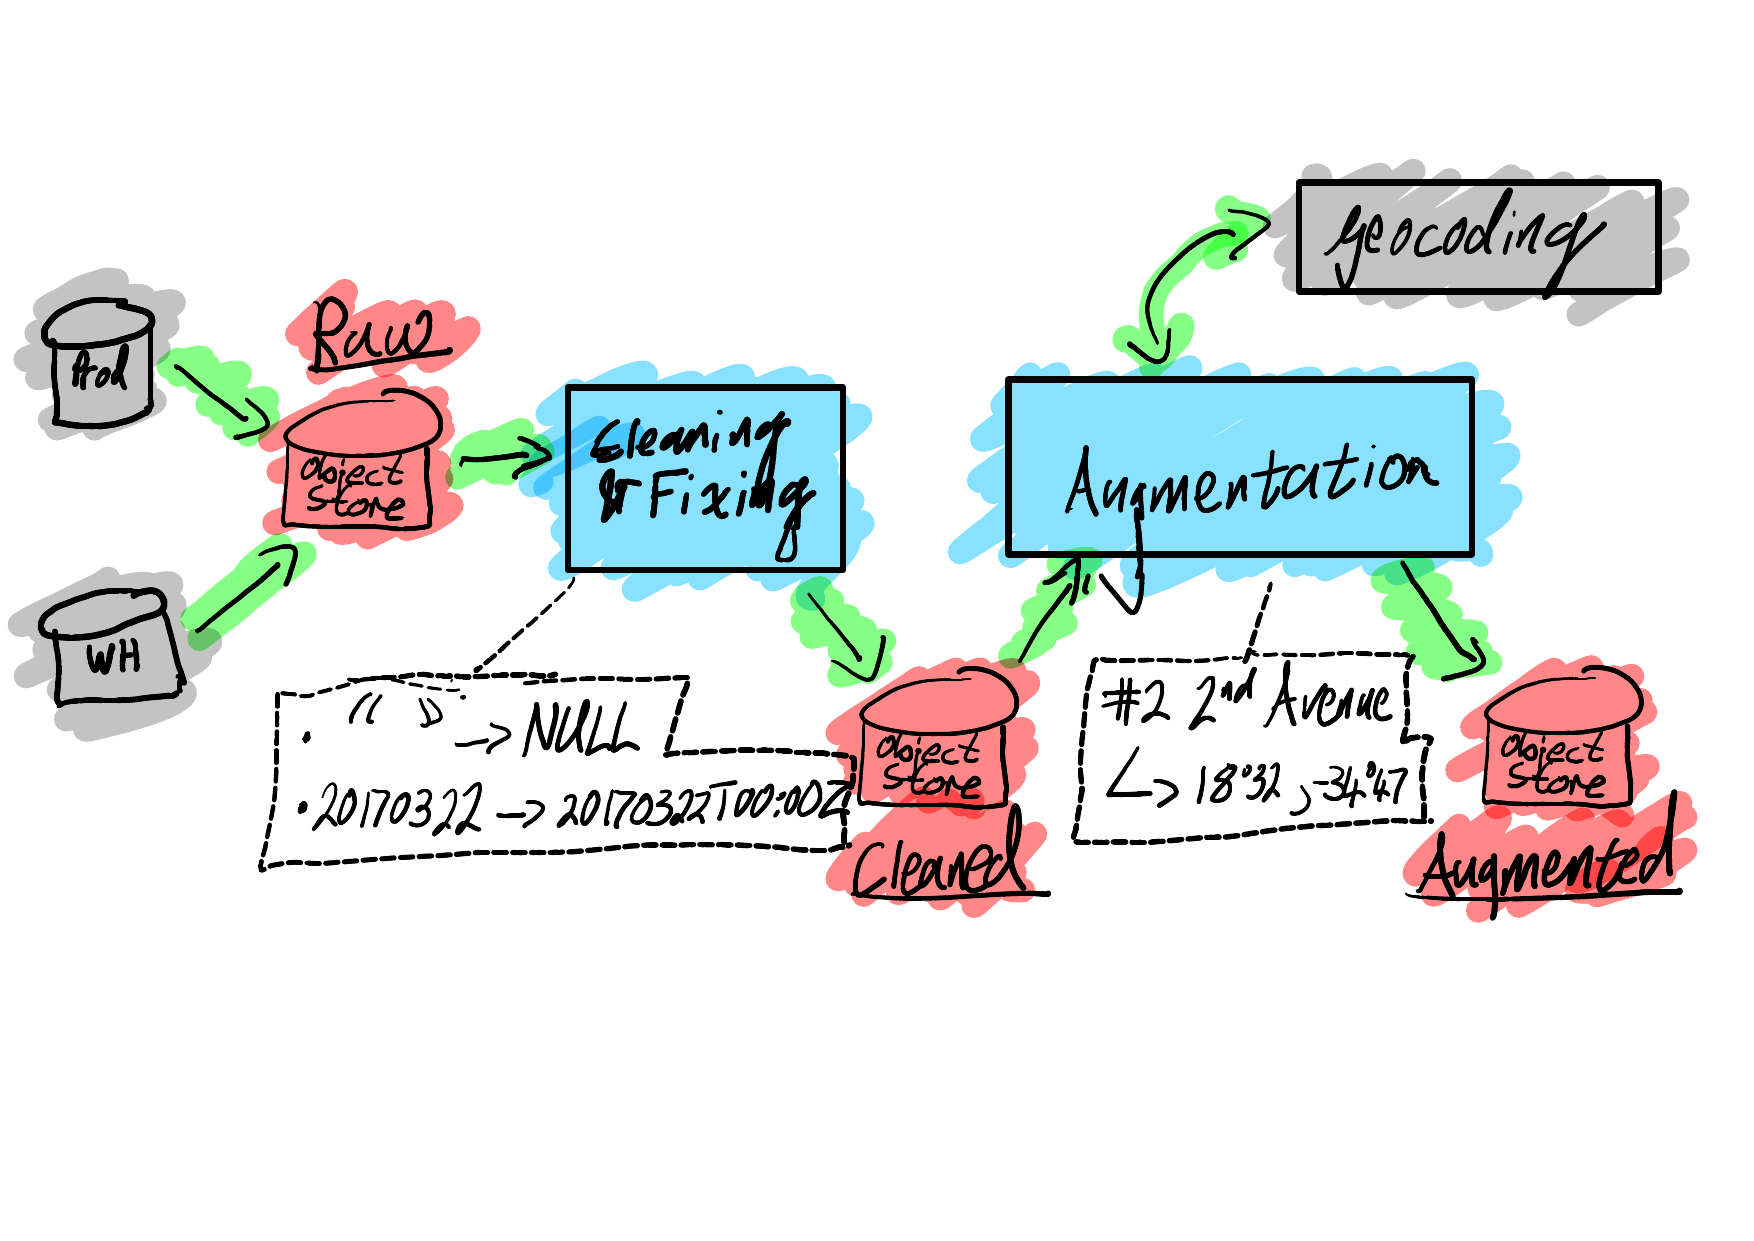 Prod
WH
Raw
Object
Store
Cleaning
& Fixing
• “ ” → NULL
• 20170322 → 20170322T00:00Z
Object
Store
Cleaned
Augmentation
geocoding
#2 2nd Avenue
↳ 18°32, -34°47
Object
Store
Augmented